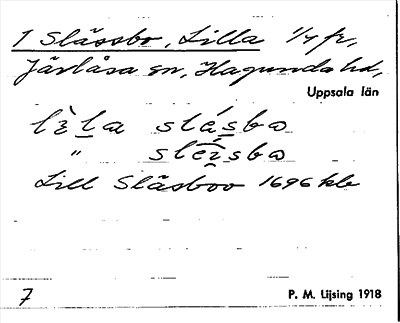 1 Slässbo, Lilla 1/4 fr,
Järlåsa sn, Hagunda hd,
Uppsala län
lìla slásba
" sléisba
Lill Släsboo 1696 kb
7 P. M. Lijsing 1918